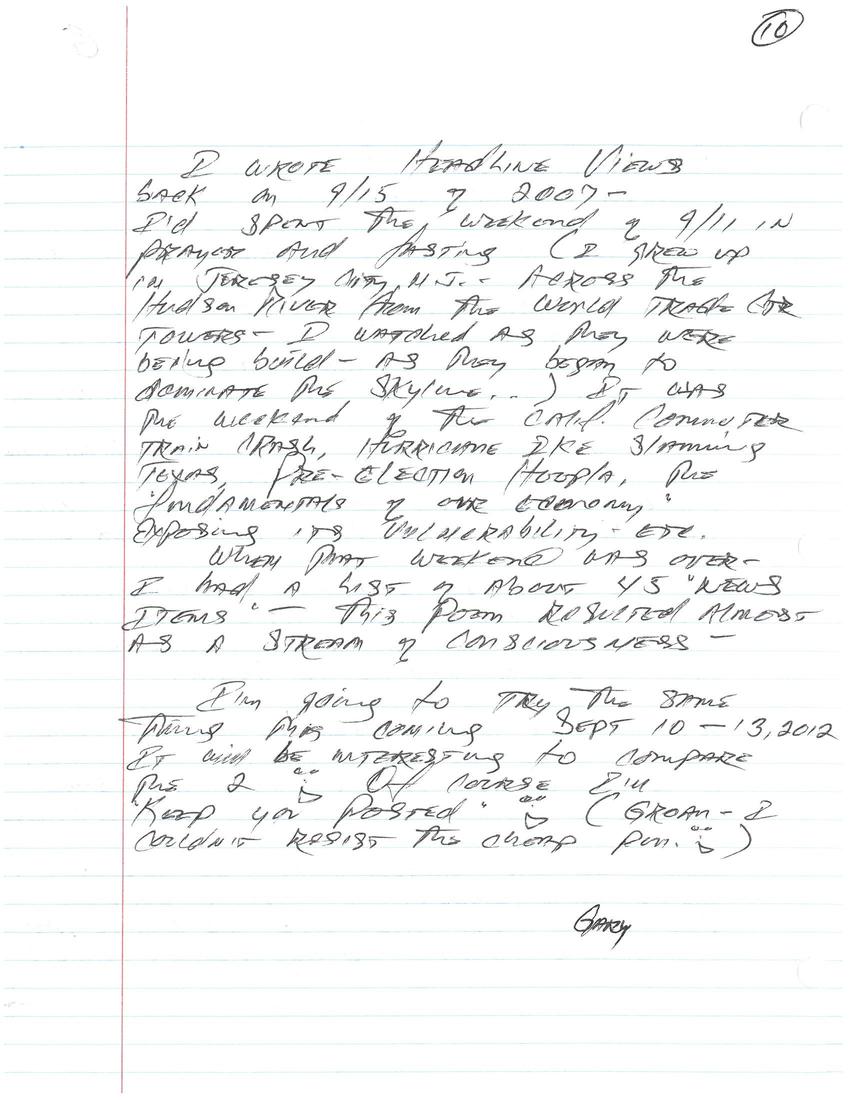 10
I WROTE HEADLINE VIEWS
BACK ON 9/15 of 2007-
I'd SPENT The WEEKEND of 9/11 IN
PRAYER And FASTING (I GREW UP
IN JERSEY CITY, N.J. - ACROSS The
Hudson RIVER from The WORLD TRADE CTR
TOWERS - I WATCHED AS They WERE
being build - AS They began to
dominate The Skyline..) IT WAS
The weekend of The CALIF. COMMUTER
TRAIN CRASH, HURRICANE IKE SLAMMING
TEXAS, PRE-ELECTION HOOPLA, The
"FUNDAMENTALS of OUR ECONOMY"
EXPOSING ITS VULNERABILITY - ETC.
WHEN THAT WEEKEND WAS OVER-
I HAD A LIST of ABOUT 45 "NEWS
ITEMS" - This Poem RESULTED ALMOST
AS A STREAM of CONSCIOUSNESS -
I'm going to TRY The SAME
Thing This coming SEPT 10-13, 2012
IT will BE INTERESTING to COMPARE
The 2 Of COURSE I'll
"KEEP you POSTED" (GROAN - I
COULDN'T RESIST The cheap pun.)
GARY